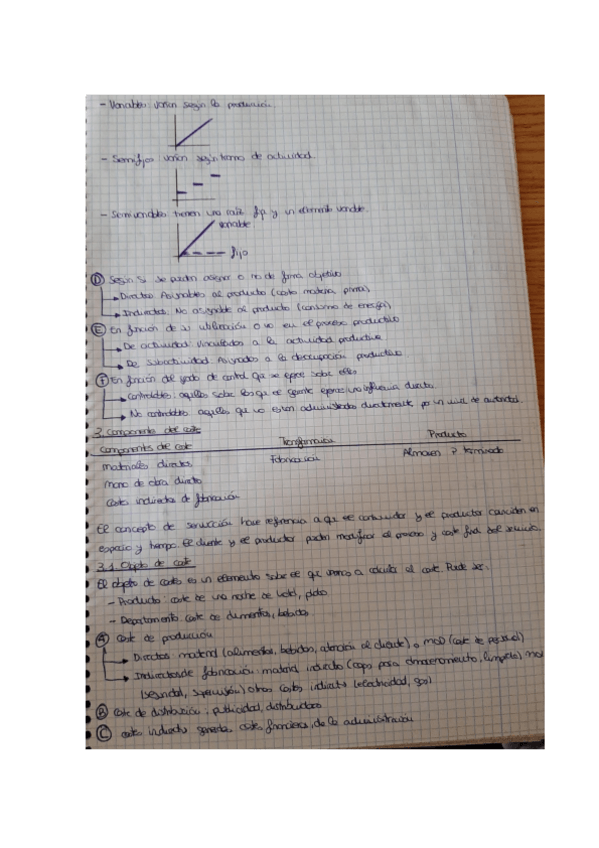 - Variables: varian según la producción.
- Semifijos: varian según tramo de actividad.
- Semivariables: tienen una raíz fija y un elemento variable.
variable
fijo
D Según si se pueden asignar o no de forma objetiva
Directos: Asignables al producto (costo materia prima)
Indirectos: No asignable al producto (consumo de energía)
E En función de su utilización o no en el proceso productivo
De actividad: Vinculados a la actividad productiva
De subactividad: Asignados a la desocupación productiva
F En función del grado de control que se ejerce sobre ellos
Controlables: aquellos sobre los que el gerente ejerce una influencia directa.
No controlables aquellos que no estan administrados directamente por un nivel de autoridad.
3. Componentes del coste
Componentes del coste Transformación Producto
materiales directos Fabricación Almacen P. terminado
mano de obra directa
Costes indirectos de fabricación
El concepto de servucción hace referencia a que el consumidor y el productor coinciden en
espacio y tiempo. El cliente y el productor podrán modificar el proceso y coste final del servicio.
3.1. Objeto de coste
El objeto de costes es un elemento sobre el que vamos a calcular el coste. Puede ser:
- Producto: coste de una noche de hotel, plato
- Departamento: coste de alimentos, bebidas
A Coste de producción
Directos: material (alimentos, bebidas, atención al cliente) o MOD (coste de personal)
Indirectos de fabricación: material indirecto (cajas para almacenamiento, limpieza) MOI
(seguridad, supervisión) otros costes indirectos (electricidad, gas)
B Coste de distribución: publicidad, distribuidora
C costes indirectos generales costes financieros, de la administración